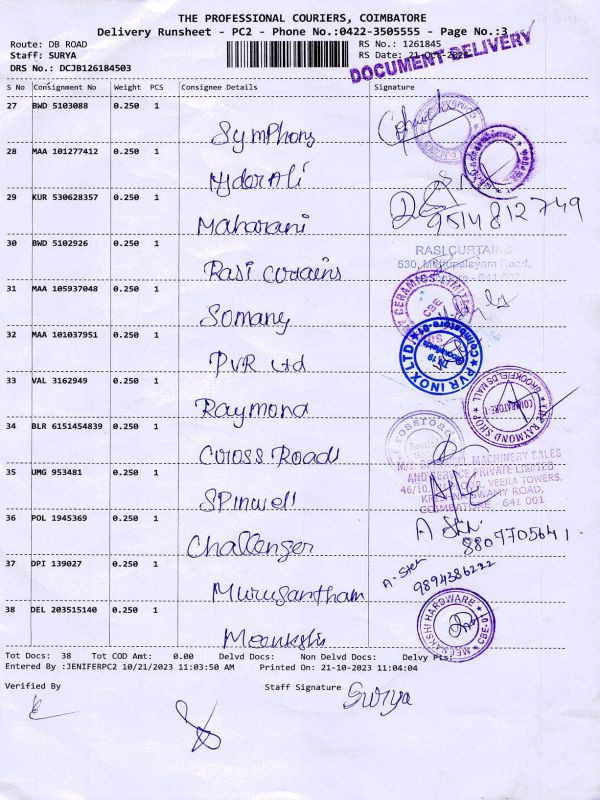 THE PROFESSIONAL COURIERS, COIMBATORE
Delivery Runsheet - PC2 - Phone No.:0422-3505555 - Page No.:3
Route: DB ROAD RS No.: 1261845
Staff: SURYA RS Date: 21-Oct-2023
DRS No.: DCJB126184503
DOCUMENT DELIVERY
S No Consignment No Weight PCS Consignee Details Signature
27 BWD 5103088 0.250 1
Symphony
28 MAA 101277412 0.250 1
Hyder Ali
29 KUR 530628357 0.250 1
9514812749
Maharani
30 BWD 5102926 0.250 1
RASI CURTAINS
530, Mettupalayam Road,
Rasi curtains
31 MAA 105937048 0.250 1
CERAMICS LIMITED
Somany
32 MAA 101037951 0.250 1
PVR INOX LTD
Coimbatore-01
PVR Ltd
33 VAL 3162949 0.250 1
THE RAYMOND SHOP
BROOKFIELDS MALL
COIMBATORE-1
Raymond
34 BLR 6151454839 0.250 1
Cross Roads
MACHINERY SALES
AND SERVICE PRIVATE LIMITED
VEERA TOWERS,
ROAD,
COIMBATORE - 641 001.
35 UMG 953481 0.250 1
Spinwell
36 POL 1945369 0.250 1
8807705641.
Challenger
37 DPI 139027 0.250 1
9894386222
Murugantham
38 DEL 203515140 0.250 1
MEENAKSHI HARDWARE
CBE-01
Meenkshi
Tot Docs: 38 Tot COD Amt: 0.00 Delvd Docs: Non Delvd Docs: Delvy Pts:
Entered By :JENIFERPC2 10/21/2023 11:03:50 AM Printed On: 21-10-2023 11:04:04
Verified By Staff Signature Surya